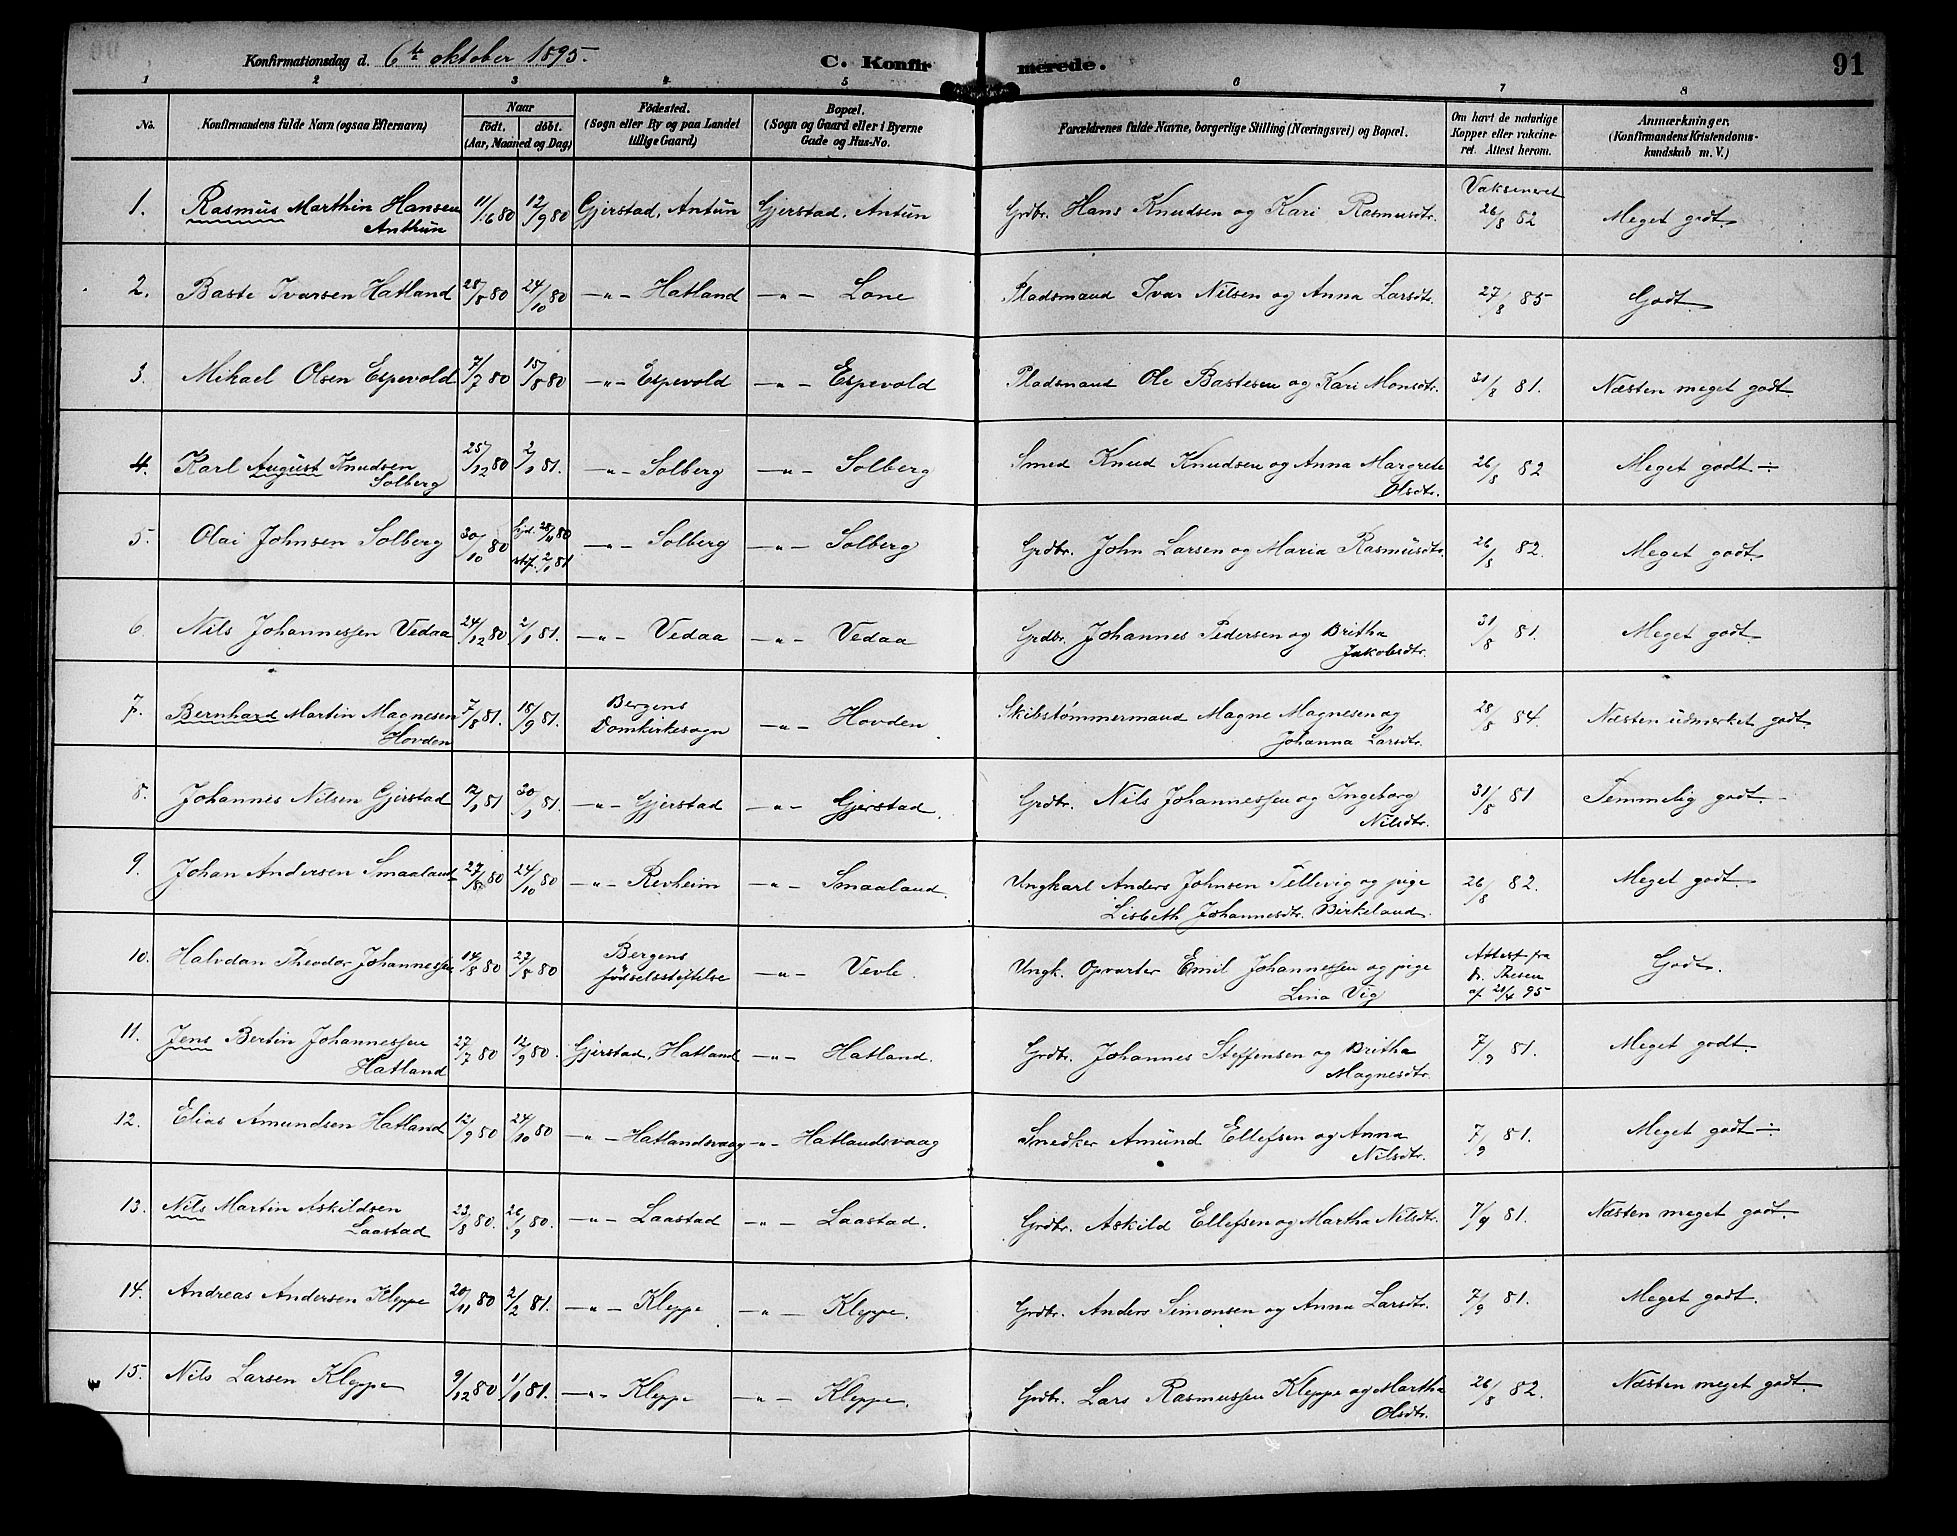 Konfirmationsdag d. 6te oktober 1895.
C. Konfirmerede.
91
1 2 3 4 5 6 7 8
No.
Konfirmandens fulde Navn (ogsaa Efternavn)
Naar
født. døbt.
(Aar, Maaned og Dag)
Fødested.
(Sogn eller By og paa Landet
tillige Gaard)
Bopæl.
(Sogn og Gaard eller i Byerne
Gade og Hus-No.
Forældrenes fulde Navne, borgerlige Stilling (Næringsvei) og Bopæl.
Om havt de naturlige
Kopper eller vakcine-
ret. Attest herom.
Anmærkninger.
(Konfirmandens Kristendoms-
kundskab m. V.)
1. Rasmus Marthin Hansen Anthun 11/6 80 12/9 80 Gjerstad, Antun Gjerstad, Antun Grdbr. Hans Knudsen og Kari Rasmusdtr. Vaksineret 26/8 82 Meget godt.
2. Baste Ivarsen Hatland 28/8 80 24/10 80 —"— Hatland —"— Lone Pladsmand Ivar Nilsen og Anna Larsdtr. 27/8 85 Godt.
3. Mikael Olsen Espevold 7/7 80 15/8 80 —"— Espevold —"— Espevold Pladsmand Ole Bastesen og Kari Monsdtr. 31/8 81. Næsten meget godt.
4. Karl August Knudsen Solberg 25/12 80 2/1 81. —"— Solberg —"— Solberg Smed Knud Knudsen og Anna Margrete Olsdtr. 26/8 82 Meget godt ÷
5. Olai Johnsen Solberg 30/10 80 hjd. 28/11 80 stf. 2/1 81 —"— Solberg —"— Solberg Grdbr. John Larsen og Maria Rasmusdtr. 26/8 82. Meget godt.
6. Nils Johannessen Vedaa 24/12 80 2/1 81. —"— Vedaa —"— Vedaa Grdbr. Johannes Pedersen og Britha Jakobsdtr. 31/8 81. Meget godt.
7. Bernhard Martin Magnesen Hovden 7/8 81. 18/9 81. Bergens Domkirkesogn —"— Hovden Skibstømmermand Magne Magnesen og Johanna Larsdtr. 28/8 84. Næsten udmerket godt.
8. Johannes Nilsen Gjerstad 12/1 81 30/1 81. —"— Gjerstad —"— Gjerstad. Grdbr. Nils Johannessen og Ingeborg Nilsdtr. 31/8 81 Temmelig godt.
9. Johan Andersen Smaaland 27/8 80 24/10 80 —"— Revheim —"— Smaaland. Ungkarl Anders Johnsen Tellevig og pige Lisbeth Johannesdtr. Birkeland. 26/8 82. Meget godt.
10. Halvdan Theodor Johannessen 14/8 80 27/8 80 Bergens fødselsstiftelse —"— Vevle. Ungk. Opvarter Emil Johannessen og pige Lina Vig Attest fra Dr. Thesen af 21/4 95 Godt.
11. Jens Bertin Johannessen Hatland 27/7 80 12/9 80. Gjerstad, Hatland —"— Hatland. Grdbr. Johannes Steffensen og Britha Magnesdtr. 7/9 81. Meget godt.
12. Elias Amundsen Hatland 12/9 80 24/10 80 —"— Hatlandsvaag —"— Hatlandsvaag Snedker Amund Ellefsen og Anna Nilsdtr. 7/9 81. Meget godt ÷
13. Nils Martin Askildsen Laastad 23/8 80. 26/9 80. —"— Laastad —"— Laastad. Grdbr. Askild Ellefsen og Martha Nilsdtr. 7/9 81. Næsten meget godt.
14. Andreas Andersen Kleppe 20/11 80 2/2 81. —"— Kleppe —"— Kleppe. Grdbr. Anders Simonsen og Anna Larsdtr. 7/9 81. Meget godt.
15. Nils Larsen Kleppe 9/12 80 1/1 81. —"— Kleppe —"— Kleppe. Grdbr. Lars Rasmussen Kleppe og Martha Olsdtr. 26/8 82. Næsten meget godt.